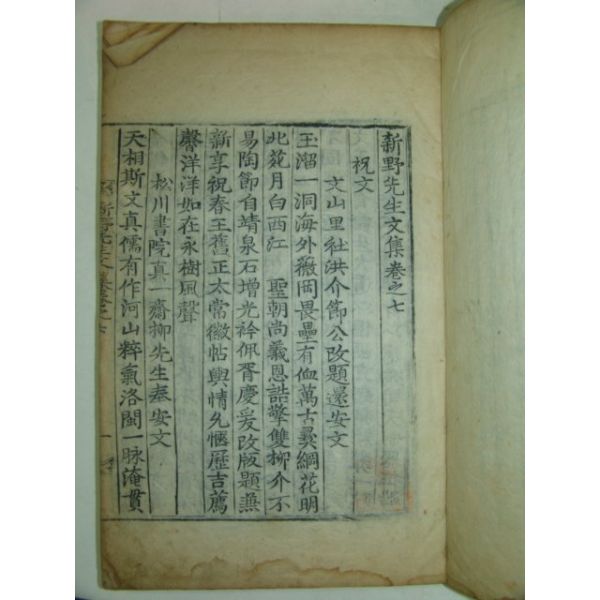 新野先生文集卷之七
祝文
文山里社洪介節公改題還安文
玉溜一洞海外薇岡畏壘有血萬古彛綱花明
北苑月白西江 聖朝尚義恩誥擎雙柳介不
易陶節自靖泉石增光衿佩胥慶爰改版題無
新享祝春王舊正太常徽帖輿情允愜歷吉薦
馨洋洋如在永樹風聲
松川書院真一齋柳先生奉安文
天相斯文真儒有作河山粹氣洛閩一脉淹貫